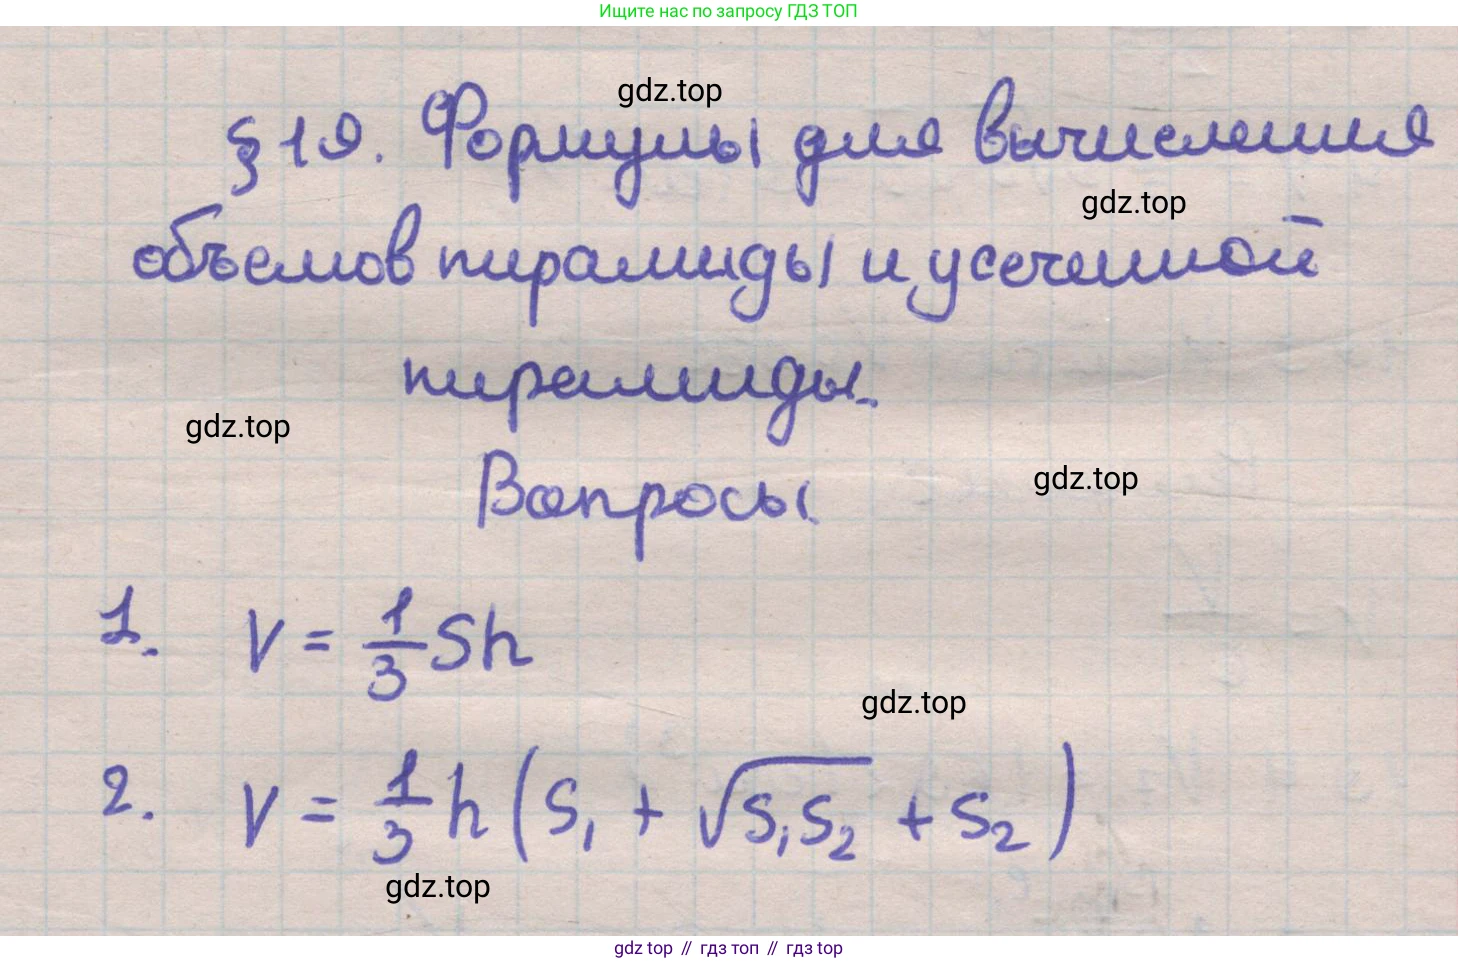 Ищите нас по запросу ГДЗ ТОП
gdz.top
§19. Формулы для вычисления
gdz.top
объемов пирамиды и усеченной
пирамиды.
gdz.top
gdz.top
Вопросы.
1. V = 1/3 Sh
gdz.top
2. V = 1/3 h (S₁ + √S₁S₂ + S₂)
gdz.top
gdz top // гдз топ // гдз top